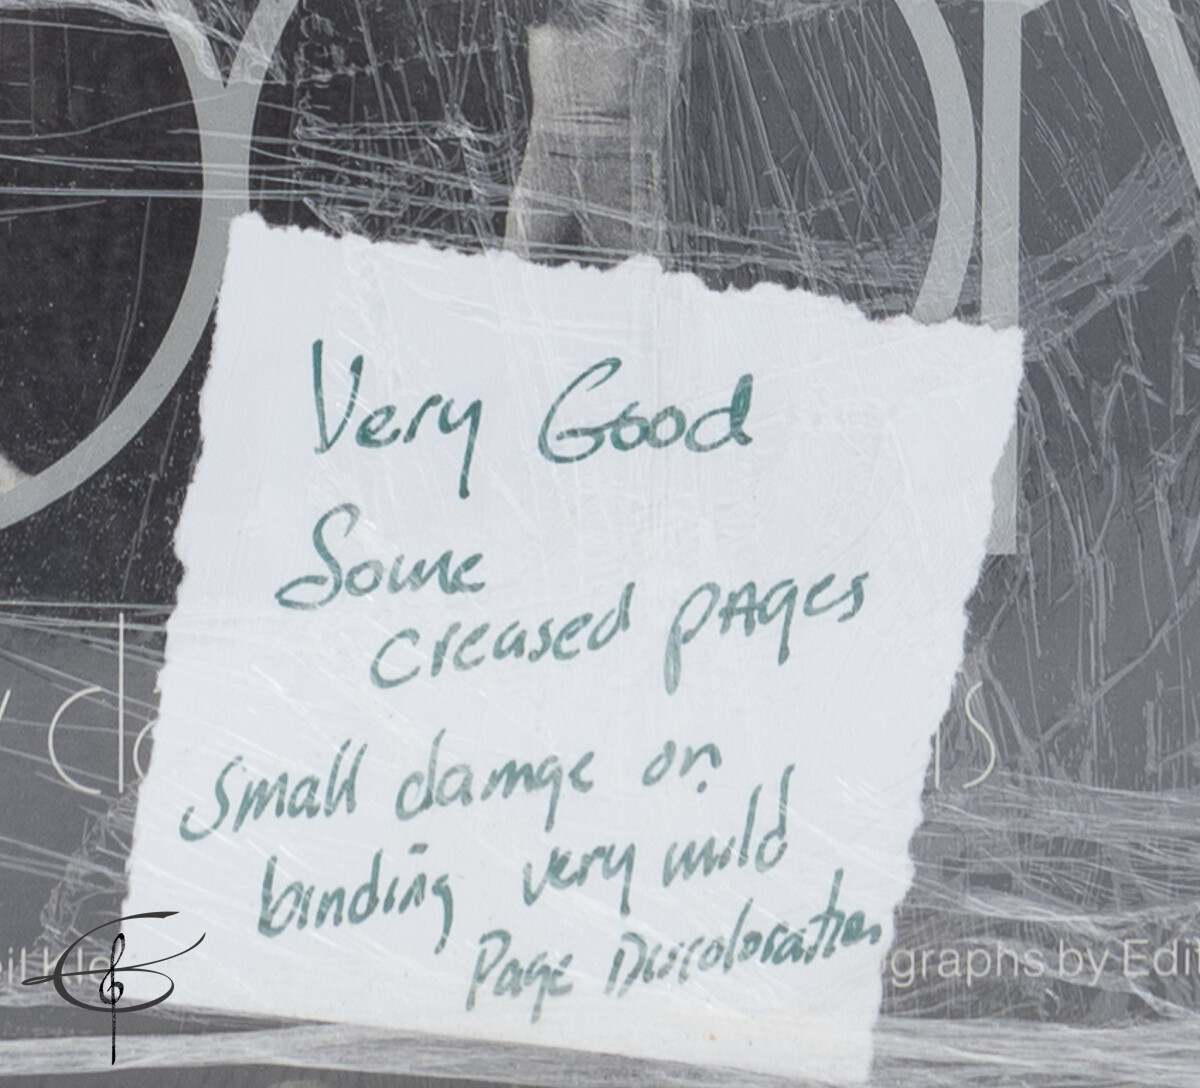 Very Good
Some
creased pAges
Small damge on
binding very mild
Page Discoloration
graphs by Edi